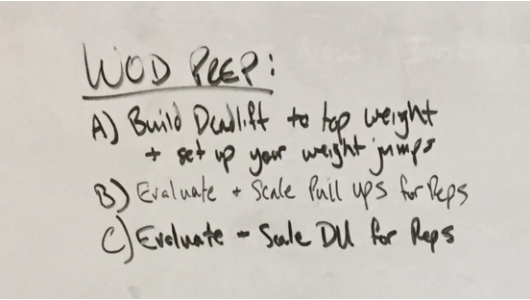 WOD PREP:
A) Build Deadlift to top weight
+ set up your weight jumps
B) Evaluate + Scale Pull ups for Reps
C) Evaluate - Scale DU for Reps